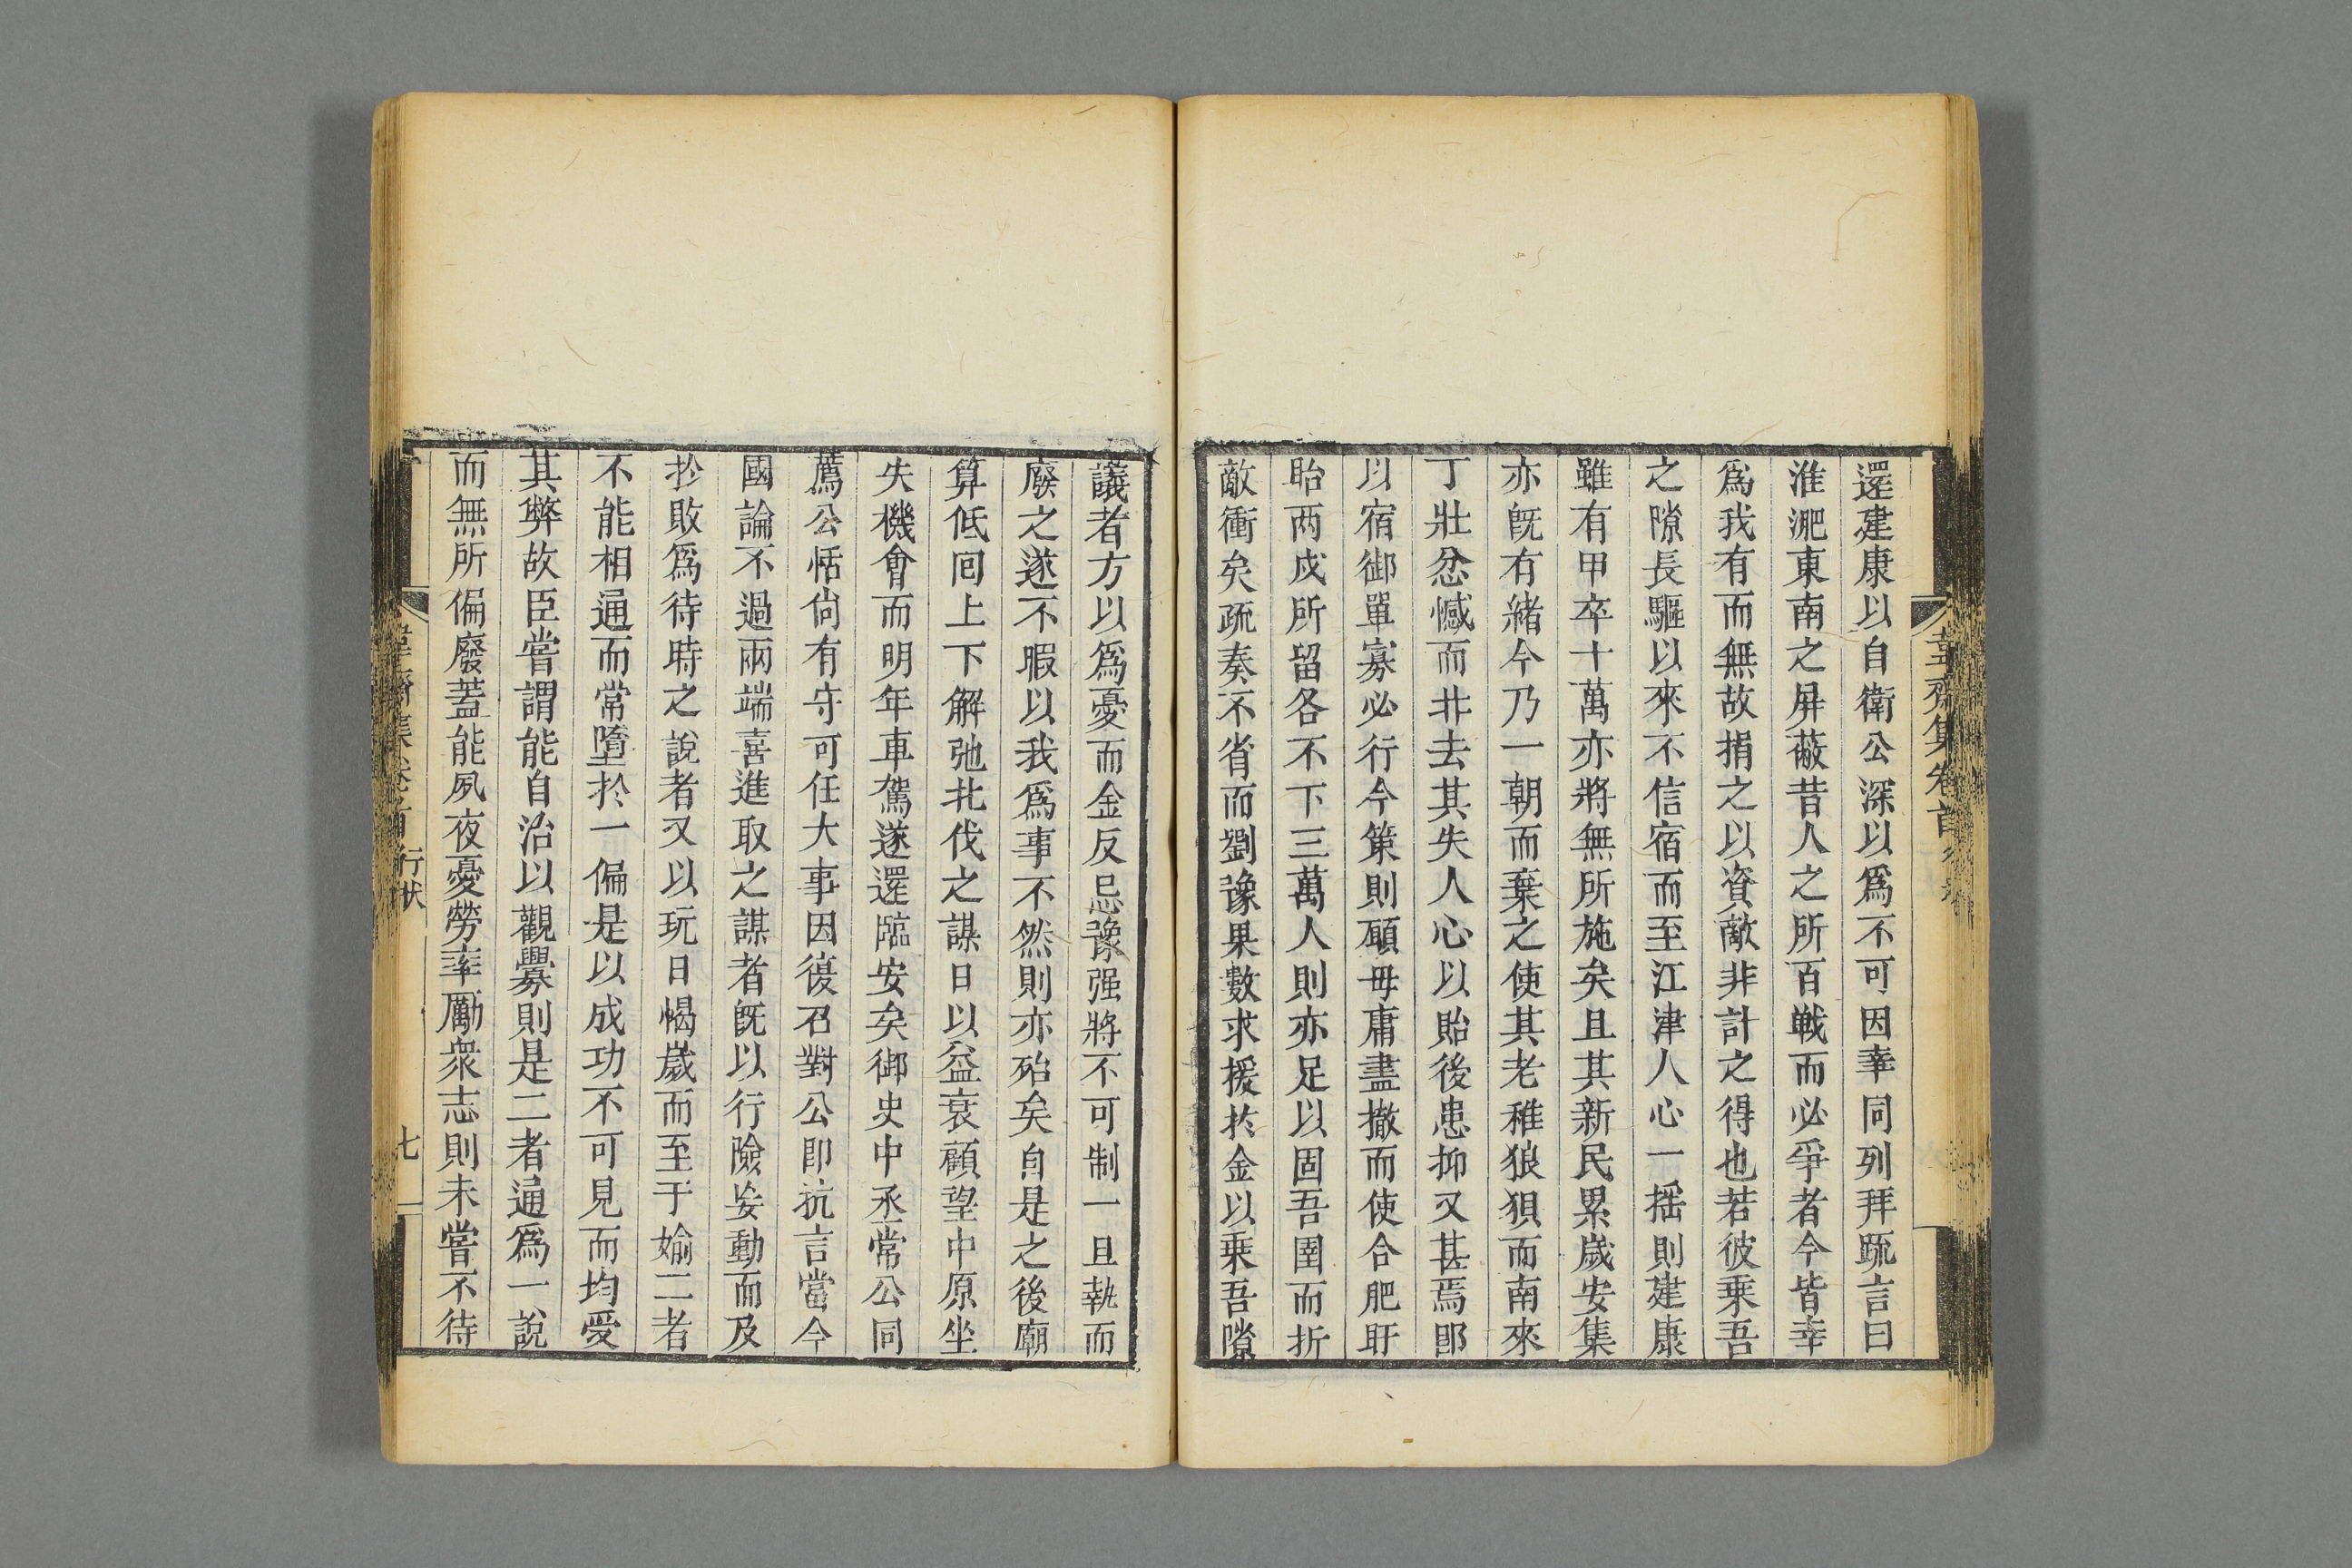 還建康以自衛公深以爲不可因率同列拜疏言曰
淮淝東南之屏蔽昔人之所百戰而必爭者今皆幸
爲我有而無故捐之以資敵非計之得也若彼乗吾
之隙長驅以來不信宿而至江津人心一揺則建康
雖有甲卒十萬亦將無所施矣且其新民累歲安集
亦旣有緒今乃一朝而棄之使其老稚狼狽而南來
丁壯忿憾而北去其失人心以貽後患抑又甚焉郎
以宿御單寡必行今策則頋毋庸盡撤而使合肥盱
眙两戍所留各不下三萬人則亦足以固吾圉而折
敵衝矣疏奏不省而劉豫果數求援扵金以乗吾隙
議者方以爲憂而金反忌豫强將不可制一旦執而
廢之遂不暇以我爲事不然則亦殆矣自是之後廟
算低回上下解弛北伐之謀日以益衰顧望中原坐
失機會而明年車駕遂還臨安矣御史中丞常公同
薦公恬尙有守可任大事因復召對公即抗言當今
國論不過兩端喜進取之謀者旣以行險妄動而及
扵敗爲待時之說者又以玩日愒歲而至于媮二者
不能相通而常墮扵一偏是以成功不可見而均受
其弊故臣嘗謂能自治以觀釁則是二者通爲一說
而無所偏廢蓋能夙夜憂勞率勵衆志則未嘗不待
韋齋集卷首
韋齋集卷首 行狀
七